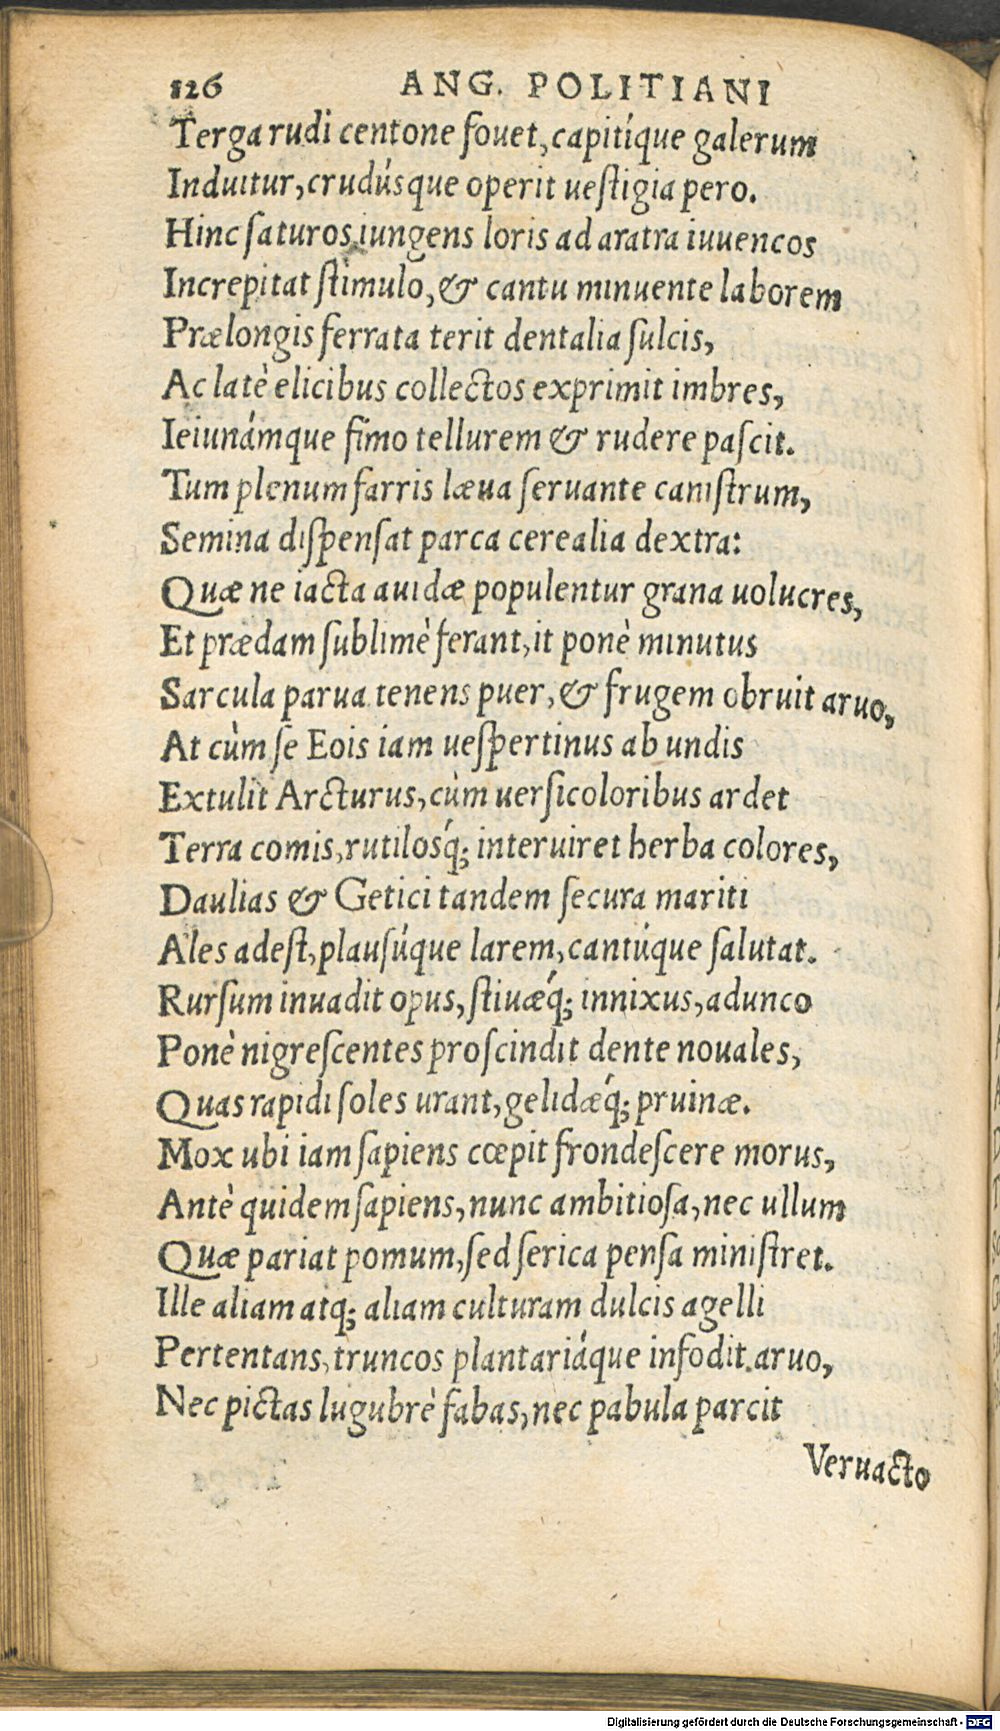 126 ANG. POLITIANI
Terga rudi centone fouet, capitíque galerum
Induitur, crudúsque operit ueſtigia pero.
Hinc ſaturos iungens loris ad aratra iuuencos
Increpitat ſtimulo, & cantu minuente laborem
Prælongis ferrata terit dentalia ſulcis,
Ac latè elicibus collectos exprimit imbres,
Ieiunámque fimo tellurem & rudere paſcit.
Tum plenum farris læua ſeruante caniſtrum,
Semina diſpenſat parca cerealia dextra:
Quæ ne iacta auidæ populentur grana uolucres,
Et prædam ſublimè ferant, it ponè minutus
Sarcula parua tenens puer, & frugem obruit aruo,
At cùm ſe Eois iam ueſpertinus ab undis
Extulit Arcturus, cùm uerſicoloribus ardet
Terra comis, rutiloſq́; interuiret herba colores,
Daulias & Getici tandem ſecura mariti
Ales adeſt, plauſúque larem, cantúque ſalutat.
Rurſum inuadit opus, ſtiuæq́; innixus, adunco
Ponè nigreſcentes proſcindit dente nouales,
Quas rapidi ſoles urant, gelidæq́; pruinæ.
Mox ubi iam ſapiens cœpit frondeſcere morus,
Antè quidem ſapiens, nunc ambitioſa, nec ullum
Quæ pariat pomum, ſed ſerica penſa miniſtret.
Ille aliam atq; aliam culturam dulcis agelli
Pertentans, truncos plantariáque infodit aruo,
Nec pictas lugubrè fabas, nec pabula parcit
Veruacto
Digitalisierung gefördert durch die Deutsche Forschungsgemeinschaft - DFG